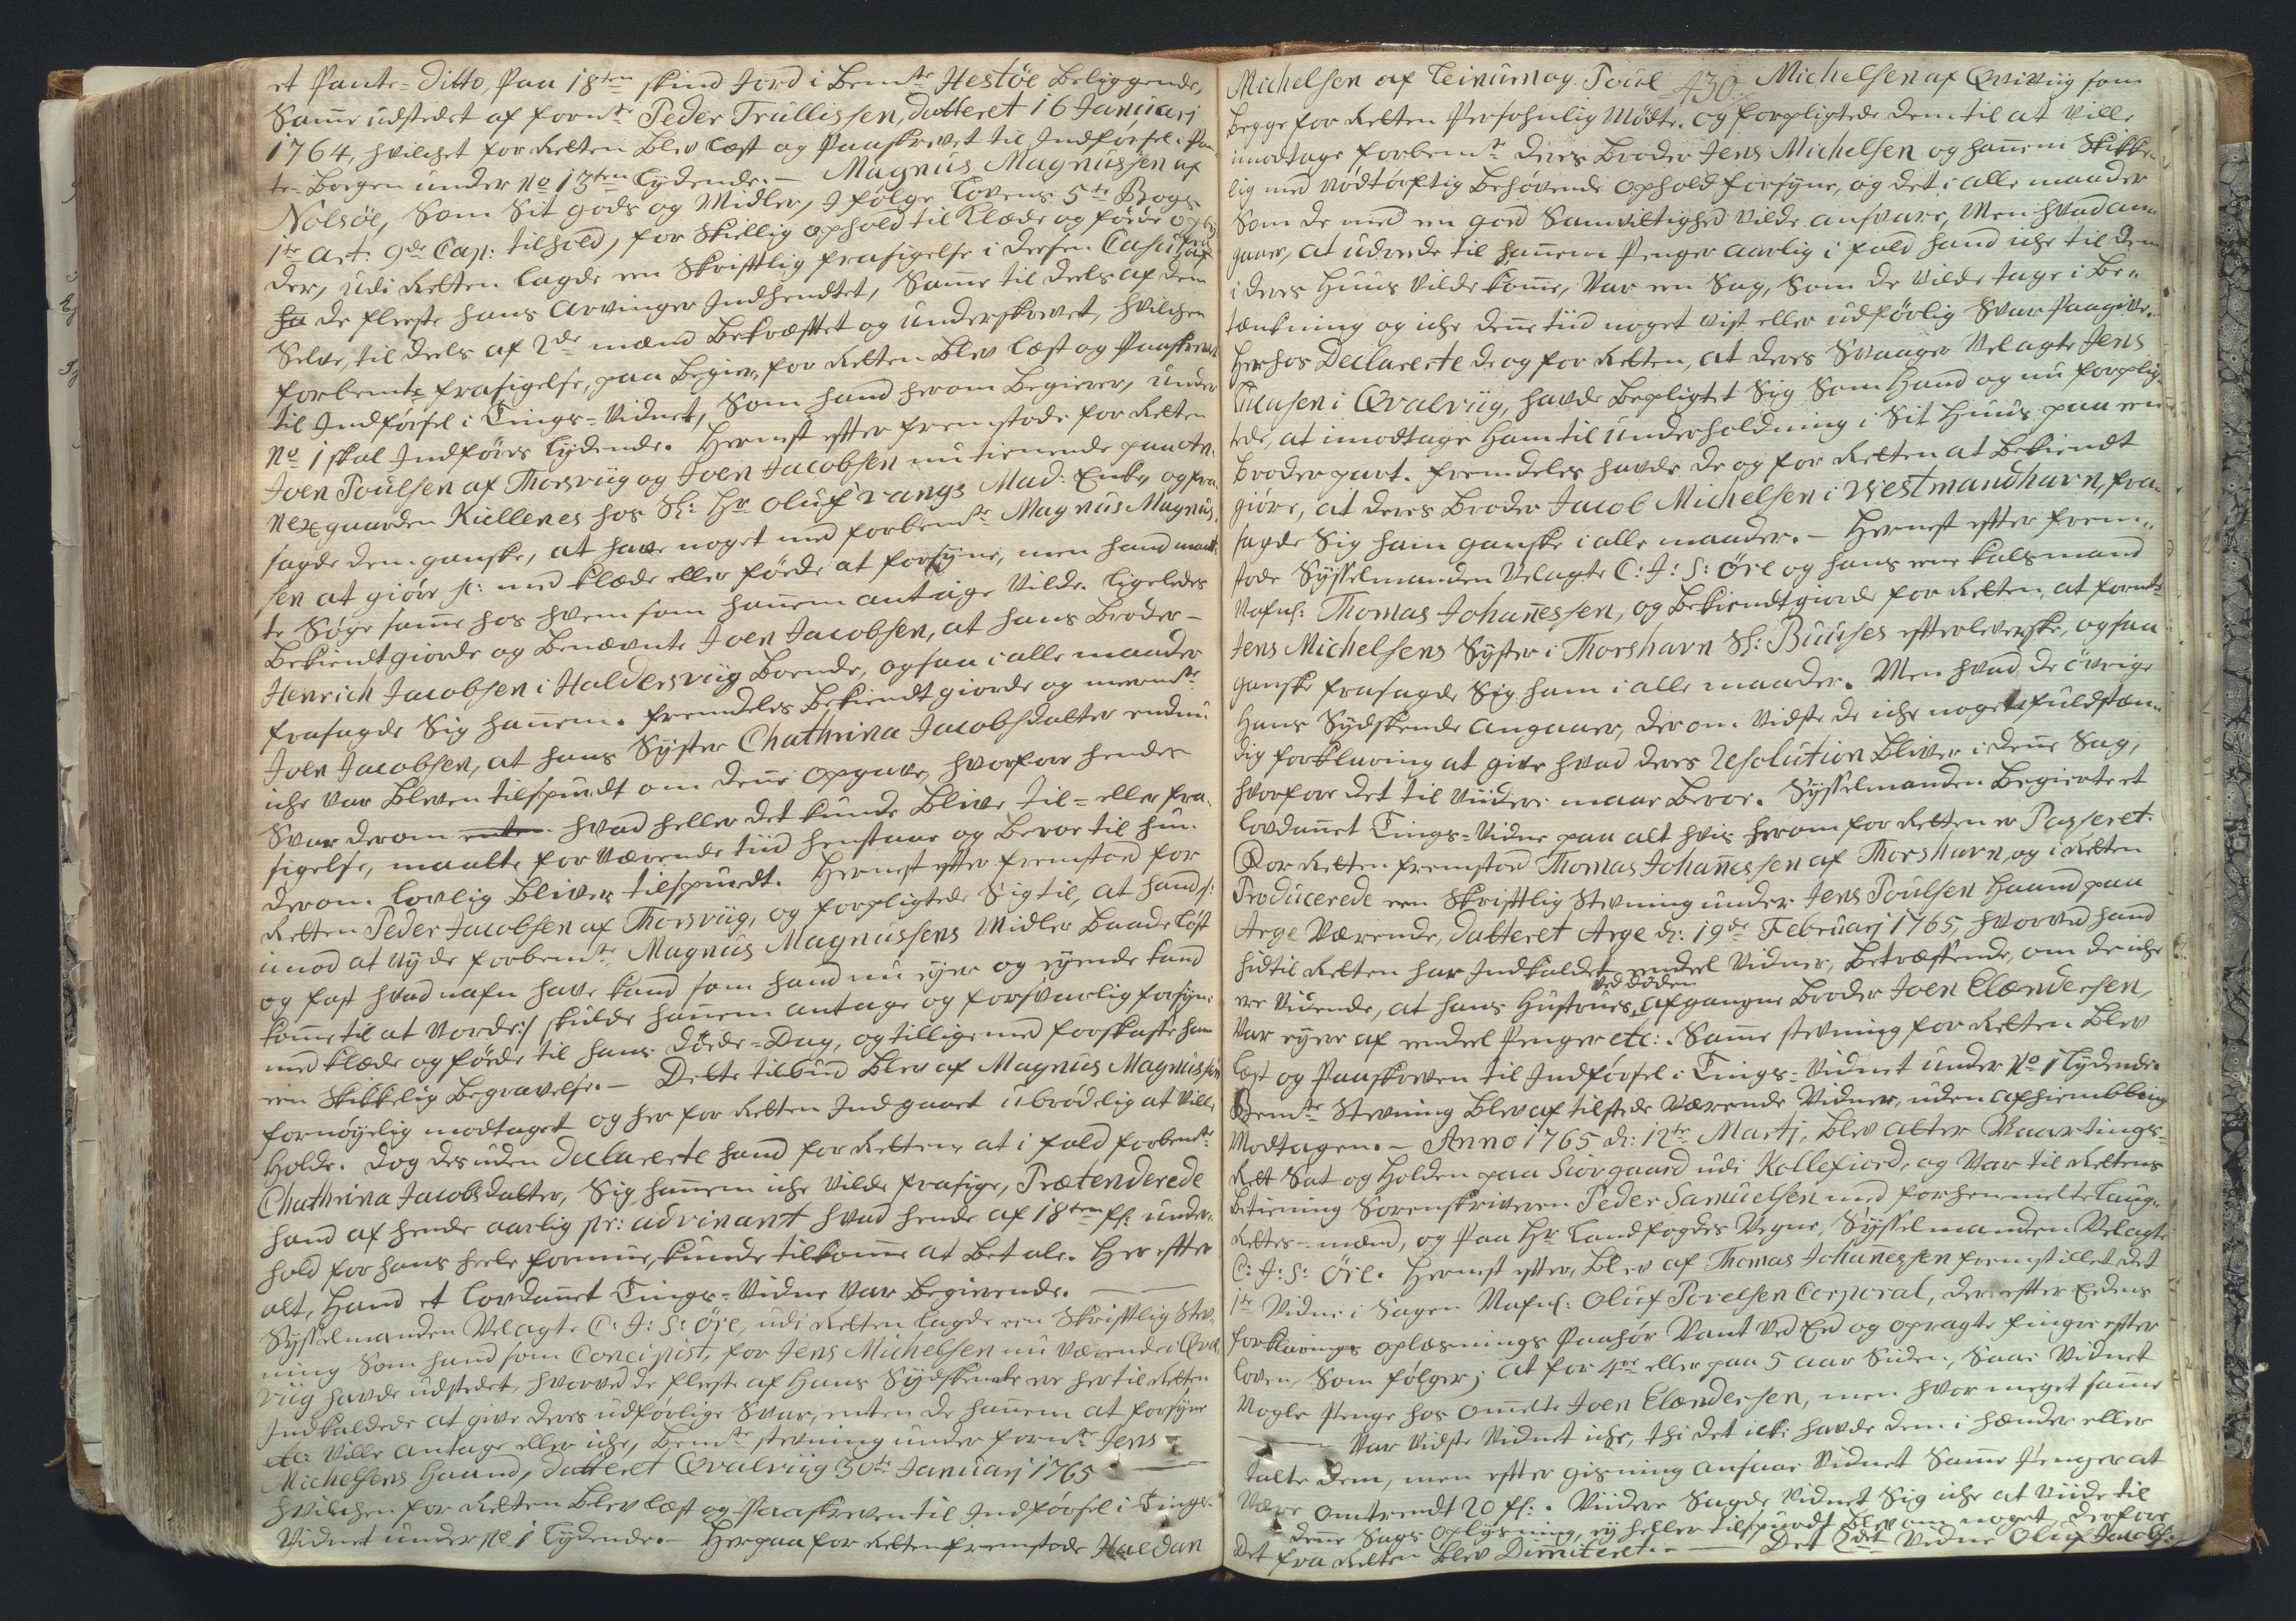 et Pante-Ditto, Paa 18ten skind Jord i Bemte Hestöe Beliggende,
Samme udstedet af fornte Peder Trullissen, datteret 16 Januarj
1764, hvilchet for Retten blev læst og Paaskrevet til Indförsel i Pan-
te-Bogen under No 13ten Lydende. — Magnus Magnussen af
Nolsöe, Som Sit gods og Midler, I fölge Lovens 5te Bogs
1te Art: 9de Cap: tilhold, for Skiellig ophold til Klæde og föede opby-
der, udi Retten lagde en Skrifttlig frasigelse i dessen Casu fra
ha de fleeste hans Arvinger Indhendtet, Samme til deels af dem
Selv, til deels af 2de mænd Bekræfttet og underskrevet, hvilchen
forbemte frasigelse, paa Begier, for Retten Blev læst og Paaskrevet
til Indförsel i Tings-Vidnet, Som hand herom Begierer, under
No 1 skal Indföres Lydende. Hernest effter fremstode for Retten
Joen Poulsen af Thorsviig og Joen Jacobsen nu tienende paa An-
nexgaarden Kiellenes hos Sl: Hr Oluf rangs Mad: Enke, og fra-
sagde dem ganske, at have noget med forbemte Magnus Magnus-
sen at giöre sc: med klæde eller föede at forsyne, men hand maat-
te Söge samme hos hvem som hannem antage Vilde. Ligeledes
Bekiendtgiorde og Benævnte Joen Jacobsen, at hans Broder-
Henrich Jacobsen i Haldersviig Boende, ogsaa i alle maader
frasagde Sig hannem. fremdeles Bekiendtgiorde og meerbemte
Joen Jacobsen, at hans Syster Chathrina Jacobsdatter endnu
iche var Bleven tilspurdt om denne opgave, hvorfore hendes
Svar derom hvad heller det kunde Blive til- eller fra-
sigelse, maatte for Værende tiid henstaae og Beroe til hun
derom Lovlig Bliver tilspurdt. Hernest effter fremstod for
Retten Peder Jacobsen af Thorsviig, og forpligtede Sig til, at hand s:
imod at Nyde forbemte Magnus Magnussens Midler Baade Löst
og fast hvad nafn have kand som hand nu eyer og eyende kand
komme til at Vorde:/ skulde hannem antage og forsvarlig forsyne
med klæde og föede til hans Döde-Dag, og tillige med forskaffe ham
een Skikkelig Begravelse. — Dette tilbud Blev af Magnus Magnussen
fornöyelig modtaget og her for Retten Indgaaet ubrödelig at Ville
Holde. Dog desuden declarerte hand for Retten, at i fald forbemte
Chathrina Jacobsdatter, Sig hannem iche Vilde frasige, Prætenderede
hand af hende aarlig pr: advinant hvad hende af 18ten sl: under-
hold for hans heele formue, kunde tilkomme at Betale. Her effter
alt, Hand et Lovdannet Tings-Vidne var Begierende.
Sysselmanden Velagte C: J: S: Öre, udi Retten lagde een Skrifttlig Stev-
ning Som hand som Concipist, for Jens Michelsen nu Værende i Qval-
viig havde udstedet, hvorved de fleeste af Hans Sydskende ere her til Retten
Indkaldede at give deres udförlige Svar, enten de hannem at forsyne
etc: Ville antage eller iche, bemte stevning under fornte Jens
Michelsens Haand, datteret Qvalviig 30te Januarj 1765
hvilchen for Retten Blev læst og Paaskreven til Indförsel i Tings-
Vidnet under No 1 Lydende. — Herpaa for Retten fremstode Haldan
430.
Michelsen af Leinum og Poul Michelsen af Qviviig som
begge for Retten Persohnlig Mödte, og forpligtede dem til at Ville
imodtage forbemte deres Broder Jens Michelsen og hannem Skikke-
lig med nödtörfftig Behövende ophold forsyne, og det i alle maader
Som de med een god Samvittighed Vilde ansvare, Men hvad an-
gaaer, at udreede til hannem Penger aarlig i fald hand iche til dem
i deres Huus vilde komme, Var een Sag, Som de Vilde tage i Be-
tænkning og iche denne tiid noget vist eller udförlig Svar Paagive.
Herhos Declarerte de og for Retten, at deres Svaager Velagte Jens
Clasen i Qvalviig, havde Bepligtet Sig Som Hand og nu forplig-
tede, at imodtage Ham til Underholdning i Sit Huus paa een
Broderpart. fremdeles havde de og for Retten at Bekiendt
giöre, at deres Broder Jacob Michelsen i Westmandhavn, fra-
sagde Sig ham ganske i alle maader. — Hernest effter frem-
stode Sysselmanden Velagte C: J: S: Öre og hans eene Kalsmand
Nafnl: Thomas Johannessen, og Bekiendtgiorde for Retten, at fornte
Jens Michelsens Syster i Thorshavn Sl: Buuses effterleverske, ogsaa
ganske frasagde Sig ham i alle maader. Men hvad de övrige
Hans Sydskende angaaer, derom Vidste de iche noget fuldstæn-
dig forklaring at give hvad deres Resolution Bliver i denne Sag,
hvorfore det til Viidere maae Beroe. Sysselmanden Begierte et
Lovdannet Tings-Vidne paa alt hvis herom for Retten er Passeret.
For Retten fremstod Thomas Johannessen af Thorshavn, og i Retten
Producerede een Skrifttlig Stevning under Jens Poulsen Haand paa
Arge Værende, datteret Arge d: 19de Februarj 1765, hvorved hand
hidtil Retten har Indkaldet endeel Vidner, Betræffende, om de iche
ved döden
ere Vidende, at hans Hustrues afgangne Broder Joen Elændersen,
Var eyere af endeel Penger etc: Samme stevning for Retten Blev
læst og Paaskreven til Indförsel i Tings-Vidnet under No 1 Lydende.
Bemte Stevning Blev af tilstede Værende Vidner, uden afhiembling
Modtagen. — Anno 1765 d: 12te Martj, blev atter Vaartings-
Rett Sat og Holden paa Siovgaard udi Kollefiord, og Var til Rettens
Betiening Sorenskriveren Peder Samuelsen med forhenmelte Laug-
Rettes-mænd, og Paa Hr Landfogdes Vegne, Sysselmanden Velagte
C: J: S: Öre. Hernest effter, blev af Thomas Johannessen fremstillet det
1te Vidne i Sagen Nafnl: Oluf Povelsen Corporal, der effter Eedens
forklarings oplæsnings Paahör Vant Ved Eed og opragte fingre effter
Loven, Som fölger; at for 4re eller paa 5 aar Siden, Saae Vidnet
Nogle Penge hos ommelte Joen Elændersen, men hvor meget samme
Var Vidste Vidnet iche, thi det iche havde dem i hænder eller
talte dem, men effter gisning ansaae Vidnet Samme Penger at
Være omtrendt 20 sl: . Viidere Sagde Vidnet Sig iche at Viide til
denne Sags oplysning, ey heller tilspurdt Blev om noget, derfore
Det fra Retten Blev Dimiteret. — Det 2det Vidne Oluf Jacobs: